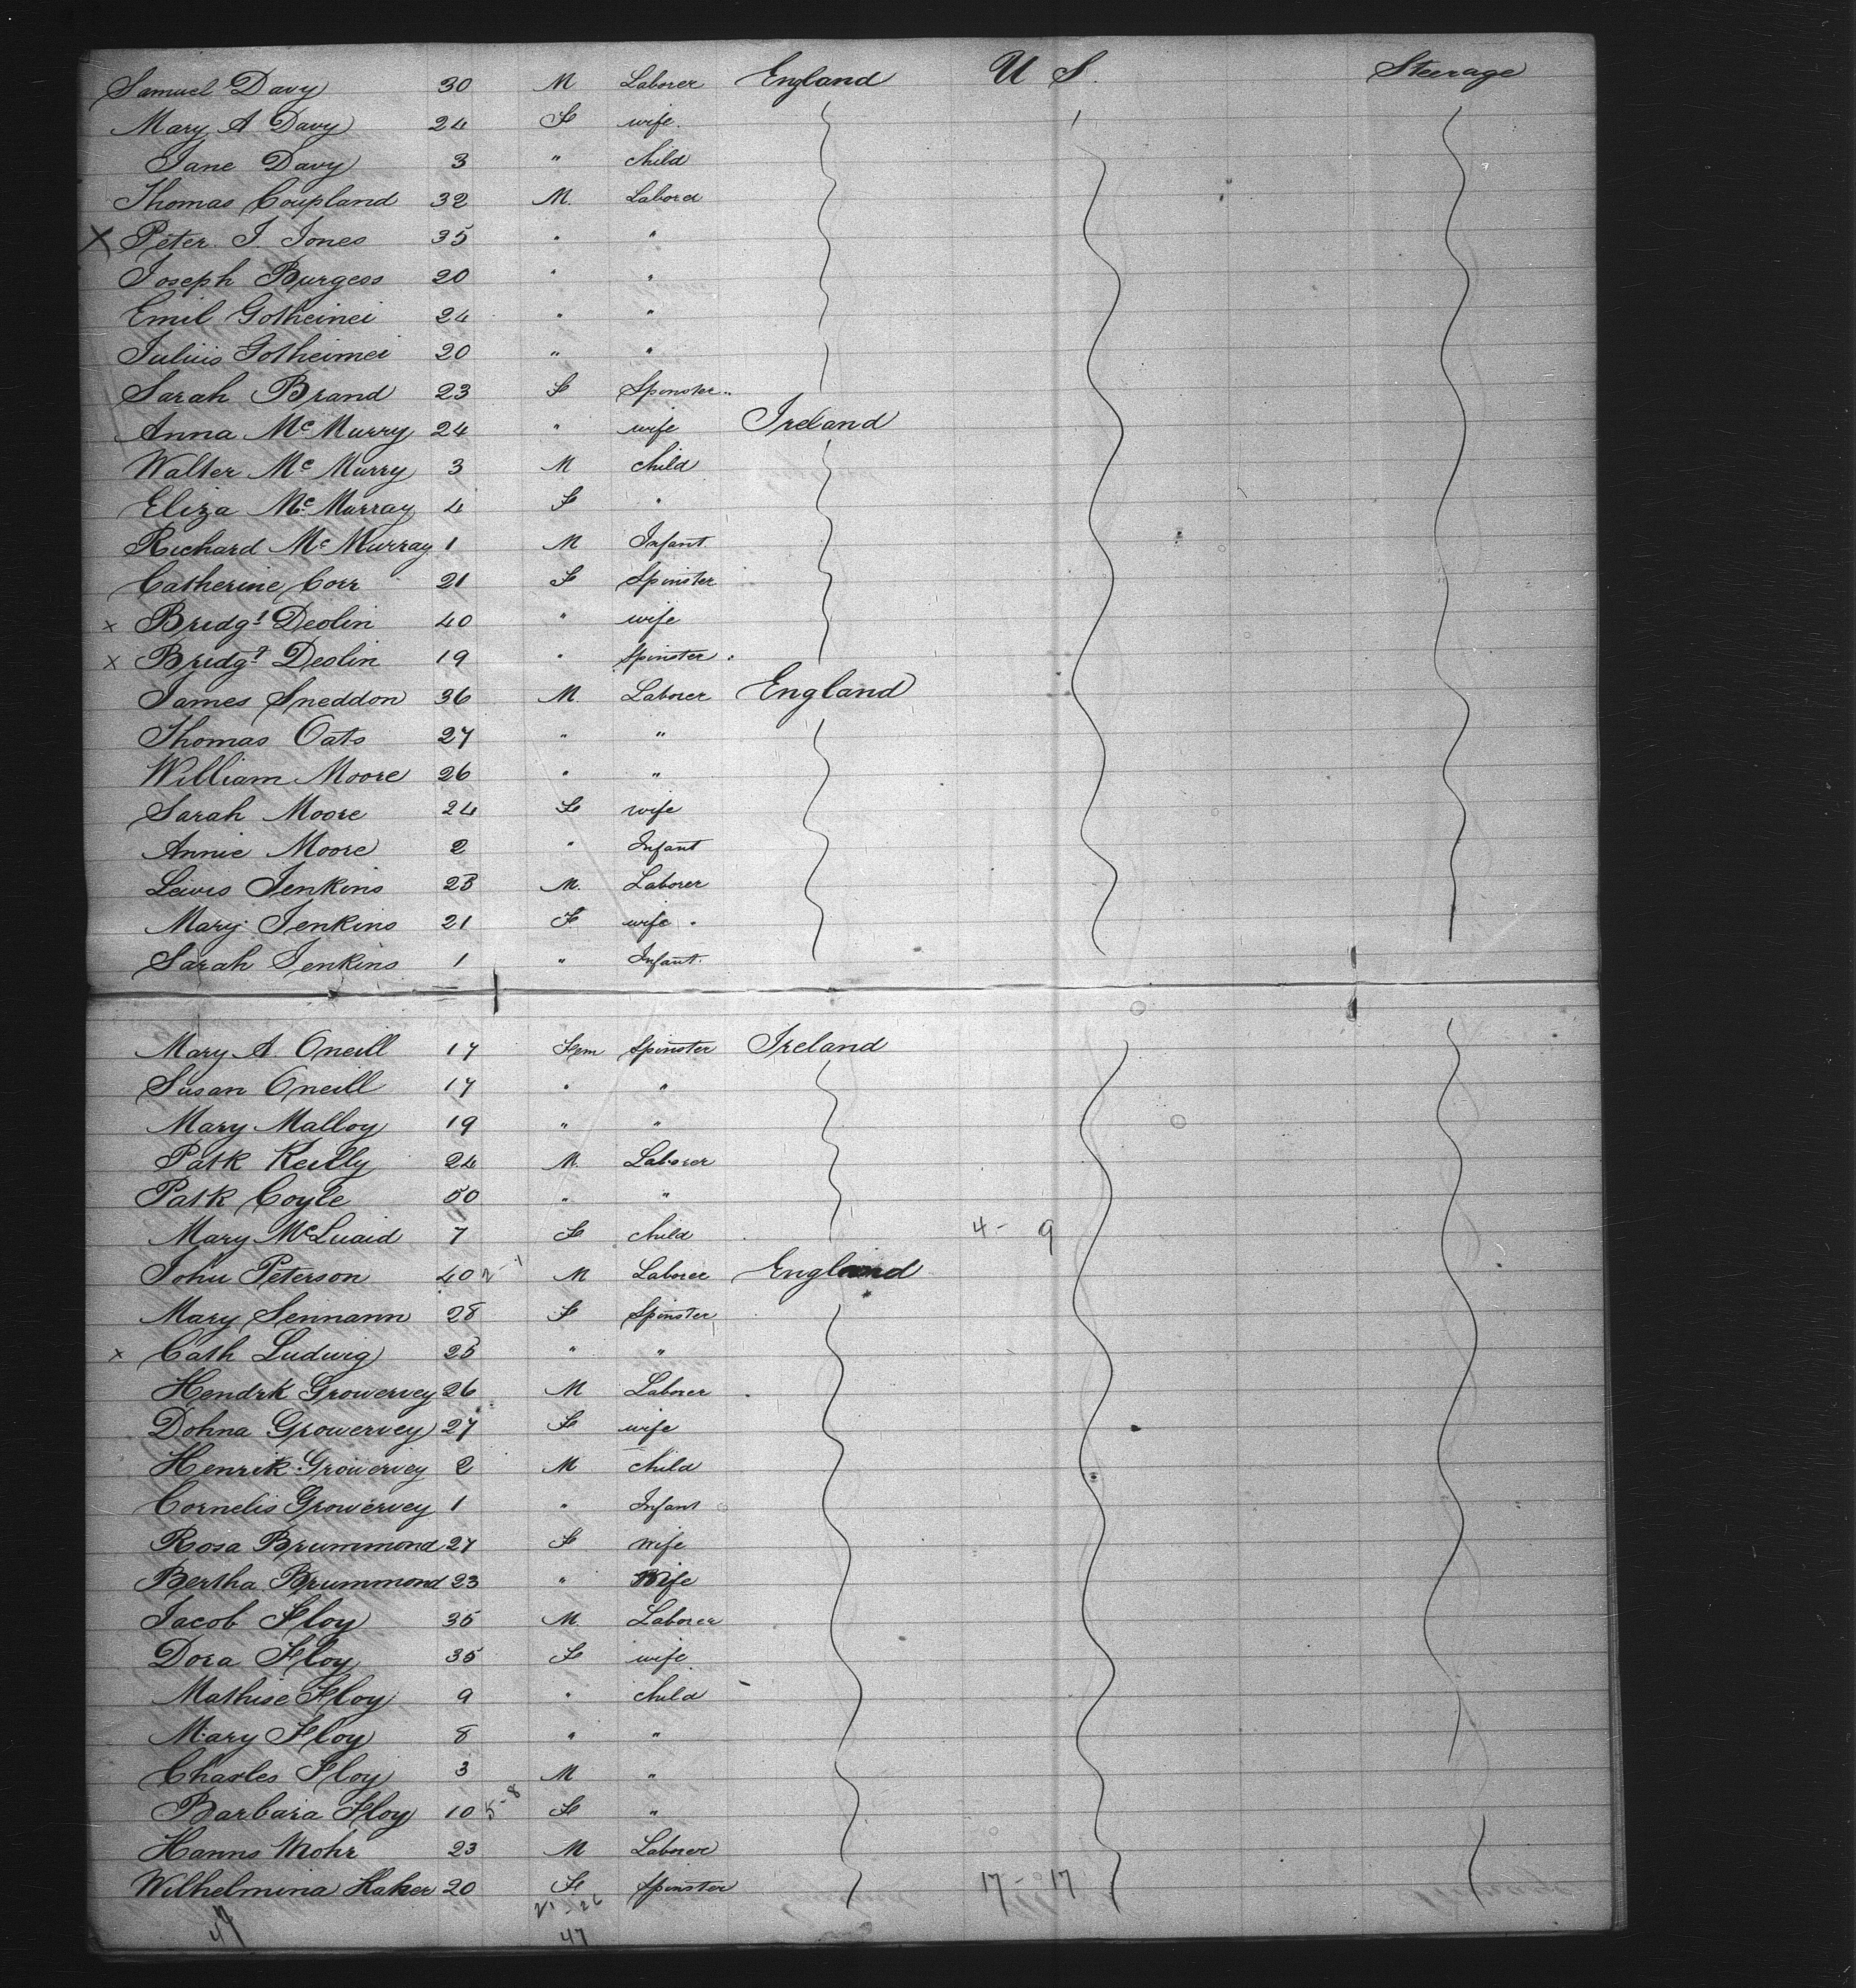 Samuel Davy 30 M Laborer England U S. Steerage
Mary A Davy 24 F wife
Jane Davy 3 " child
Thomas Coupland 32 M. Laborer
X Peter J. Jones 35 " "
Joseph Burgess 20 " "
Emil Gotheimei 24 " "
Julius Gotheimei 20 " "
Sarah Brand 23 F Spinster
Anna McMurry 24 " wife Ireland
Walter McMurry 3 M child
Eliza McMurray 4 F "
Richard McMurray 1 M Infant
Catherine Corr 21 F Spinster
x Bridgt Deolin 40 " wife
x Bridgt Deolin 19 " Spinster
James Sneddon 36 M. Laborer England
Thomas Oats 27 " "
William Moore 26 " "
Sarah Moore 24 F wife
Annie Moore 2 " Infant
Lewis Jenkins 23 M. Laborer
Mary Jenkins 21 F wife
Sarah Jenkins 1 " Infant
Mary A. Oneill 17 Fem Spinster Ireland
Susan Oneill 17 " "
Mary Malloy 19 " "
Patk Reilly 24 M. Laborer
Patk Coyle 50 " "
Mary McQuaid 7 F child 4 - 9
John Peterson 40 2 - 1 M Laborer England
Mary Sennann 28 F Spinster
x Cath Ludwig 25 " "
Hendrk Growervey 26 M Laborer
Dohna Growervey 27 F wife
Henrik Growervey 2 M child
Cornelis Growervey 1 " Infant
Rosa Brummond 27 F wife
Bertha Brummond 23 " Wife
Jacob Floy 35 M. Laborer
Dora Floy 35 F wife
Mathise Floy 9 " child
Mary Floy 8 " "
Charles Floy 3 M "
Barbara Floy 10 5 - 8 F "
Hanns Mohr 23 M Laborer
Wilhelmina Haker 20 F Spinster 17 - 17
21 - 26
47 47